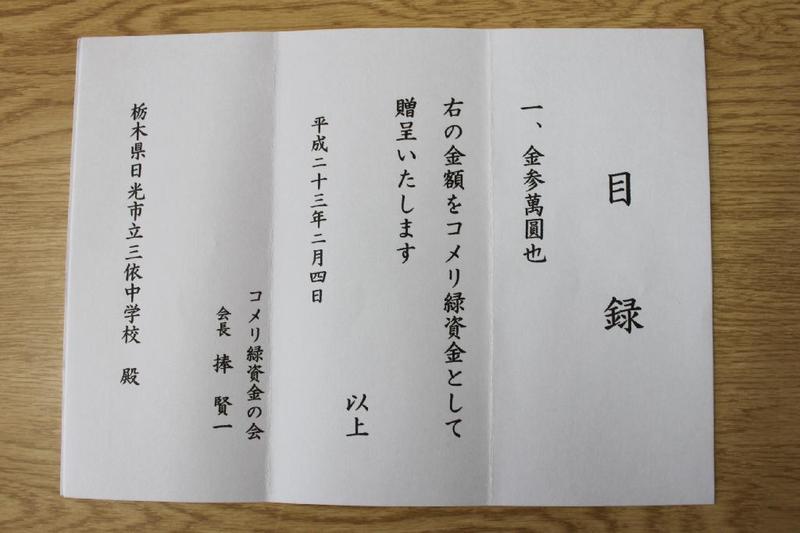 目録
一、金参萬圓也
右の金額をコメリ緑資金として
贈呈いたします
以上
平成二十三年二月四日
コメリ緑資金の会
会長 捧 賢一
栃木県日光市立三依中学校 殿